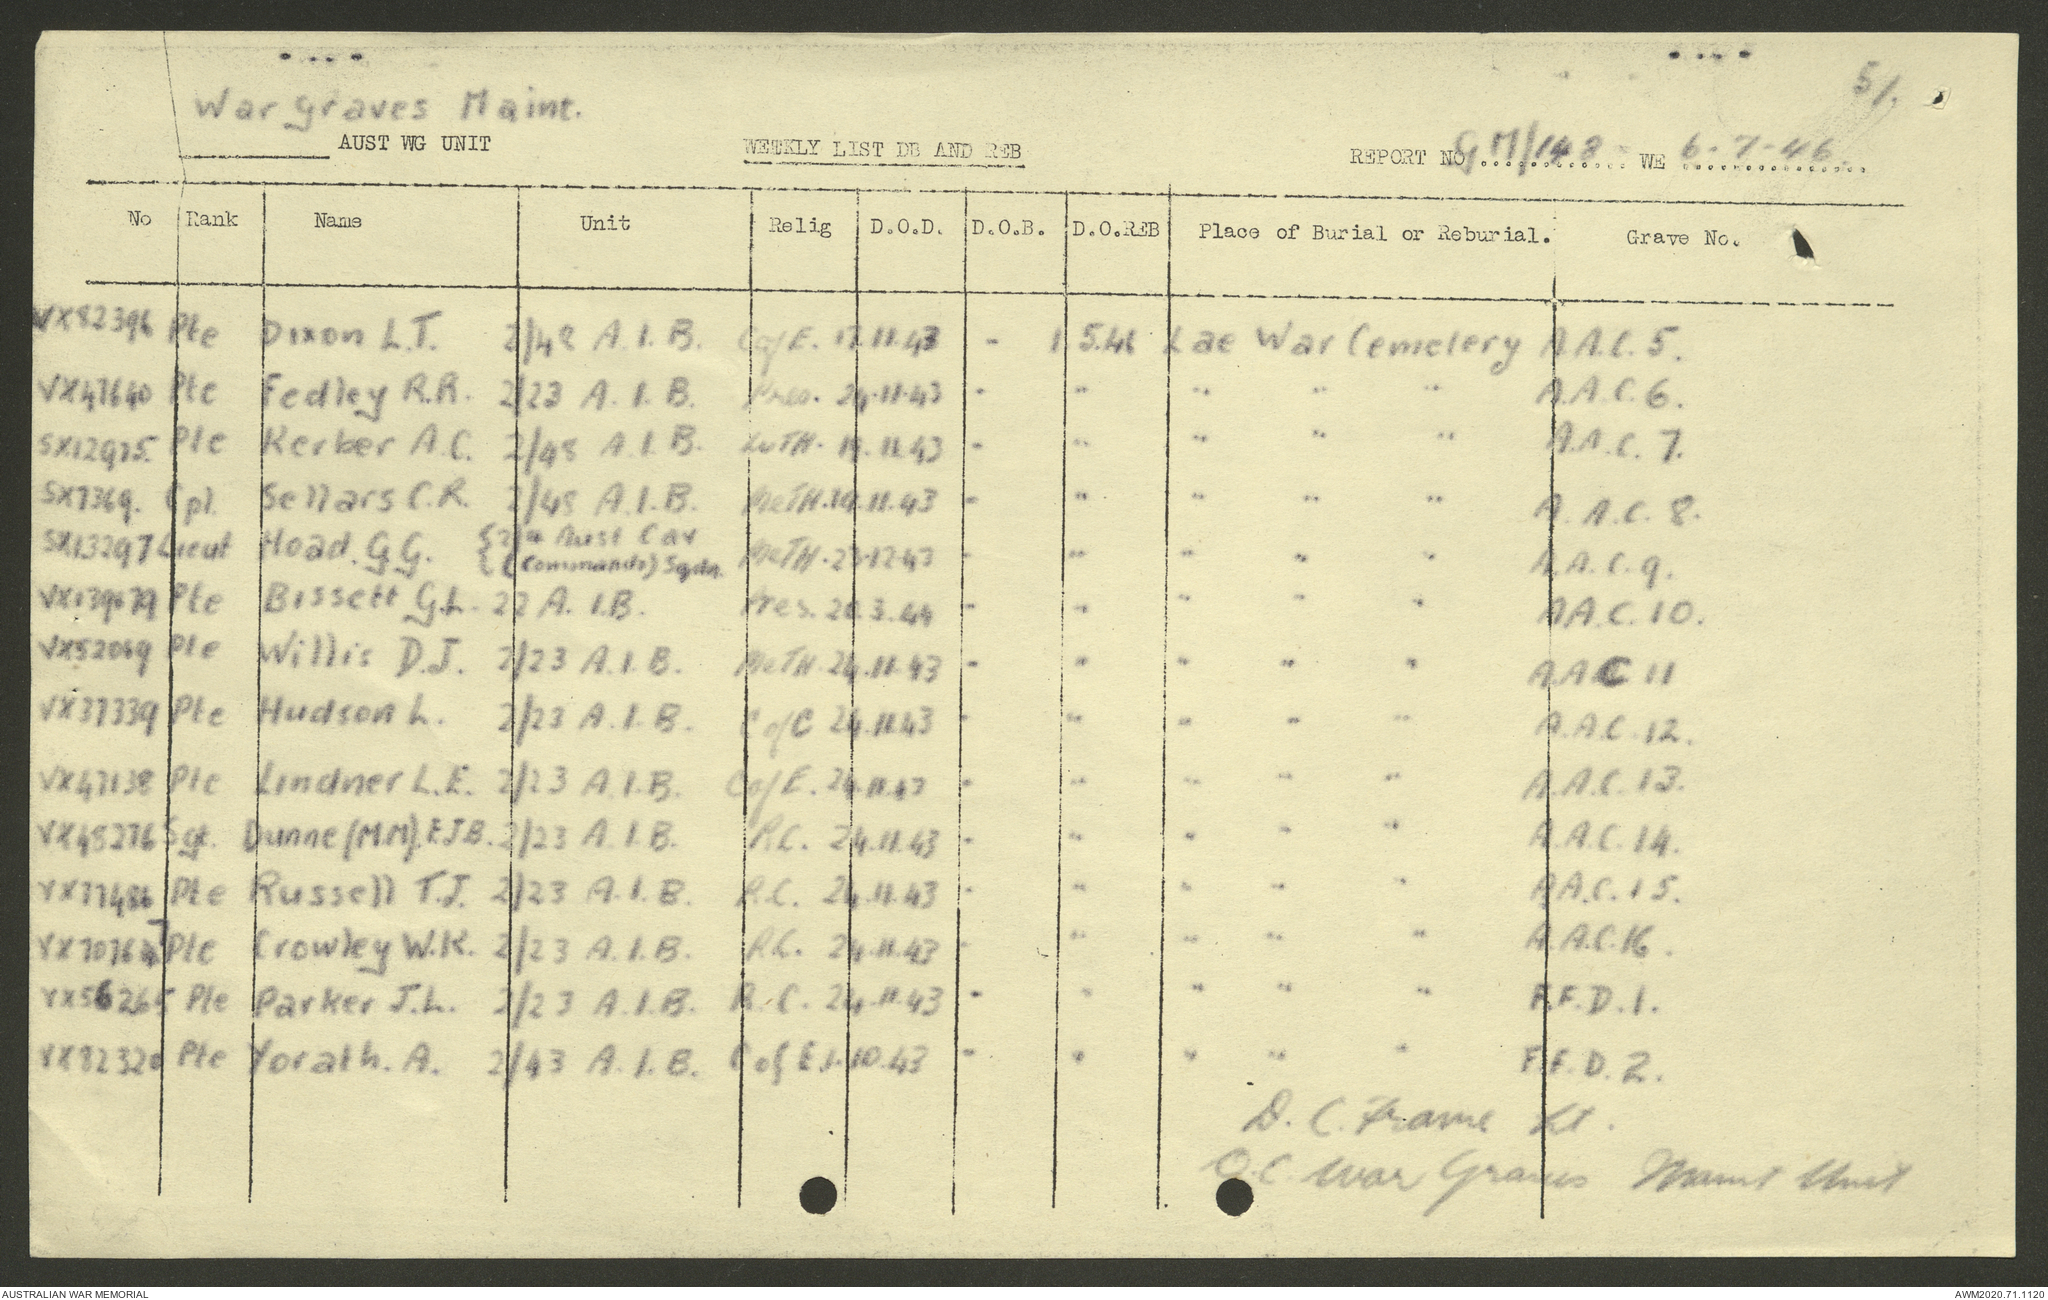 51.
War graves Maint.
AUST WG UNIT WEEKLY LIST DB AND REB REPORT NO GM/148 WE 6-7-46.
No Rank Name Unit Relig D.O.D. D.O.B. D.O.REB Place of Burial or Reburial. Grave No.
VX82396 Pte Dixon L.T. 2/48 A.I.B. C of E. 17.11.43 - 1 5.46 Lae War Cemetery A.A.C. 5.
VX47640 Pte Fedley R.R. 2/23 A.I.B. Pres. 24.11.43 - " " " " A.A.C. 6.
SX12975 Pte Kerber A.C. 2/48 A.I.B. LuTH. 19.11.43 - " " " " A.A.C. 7.
SX7369. Cpl. Sellars C.R. 2/48 A.I.B. MeTH. 19.11.43 - " " " " A.A.C. 8.
SX13297 Lieut Hoad. G.G. Aust Cav
(Commando) Sqdn. MeTH. 23.12.43 - " " " " A.A.C. 9.
Pte Bissett G.L. 22 A.I.B. Pres. 20.3.44 - " " " " A.A.C. 10.
VX52069 Pte Willis D.J. 2/23 A.I.B. MeTH. 24.11.43 - " " " " A.A.C 11
VX37339 Pte Hudson L. 2/23 A.I.B. C of C 24.11.43 - " " " " A.A.C. 12.
VX47138 Pte Lindner L.E. 2/23 A.I.B. C of E. 24.11.43 - " " " " A.A.C. 13.
VX48276 Sgt. Dunne (M.M). F.J.B. 2/23 A.I.B. R.C. 24.11.43 - " " " " A.A.C. 14.
VX37486 Pte Russell T.J. 2/23 A.I.B. R.C. 24.11.43 - " " " " A.A.C. 15.
Pte Crowley W.K. 2/23 A.I.B. R.C. 24.11.43 - " " " " A.A.C. 16.
VX56265 Pte Parker J.L. 2/23 A.I.B. R.C. 24.11.43 - " " " " F.F.D. 1.
VX82320 Pte Yorath. A. 2/43 A.I.B. C of E 1.10.43 - " " " " F.F.D. 2.
D. C. Frame Lt.
O.C. War Graves Maint Unit
AUSTRALIAN WAR MEMORIAL AWM2020.71.1120